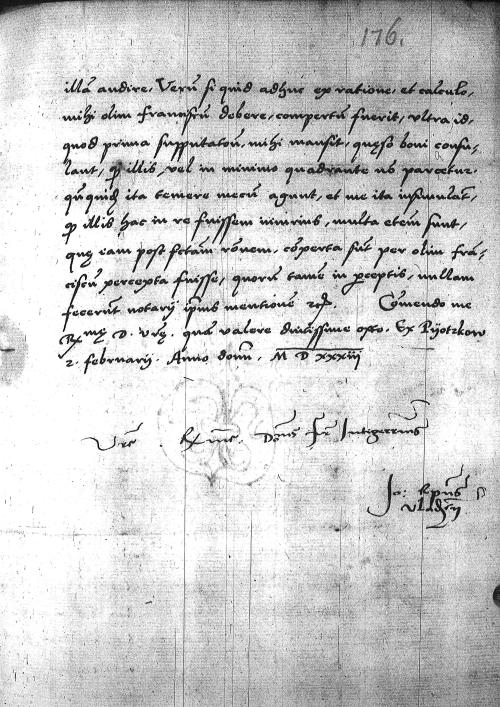 176.
illā audire. Verū si quid adhuc ex ratione, et calculo,
mihi olim Franciscū debere, compertū fuerit, ultra id,
quod prima supputatōn mihi mansit, quęso boni consu-
lant, illis vel in minimo quadrante nō parcetur.
ita temere mecū agunt, et me ita insimulāt,
illis hac in re fuissem iniurius, multa etem sunt,
quę iam post factam rōnem, cōperta sūt per olim frā-
ciscū percepta fuisse, quorū tamē in p̄ceptis, nullam
fecerunt notarij ipsius mentionē Cōmendo me
Rmę D. Vrę. quā valere diutissime opto. Ex Pijotrkow
2. februarij. Anno domī. M D XXXIII
Vrē. Rme. Domīs Integerrimus
Jo: Epūs